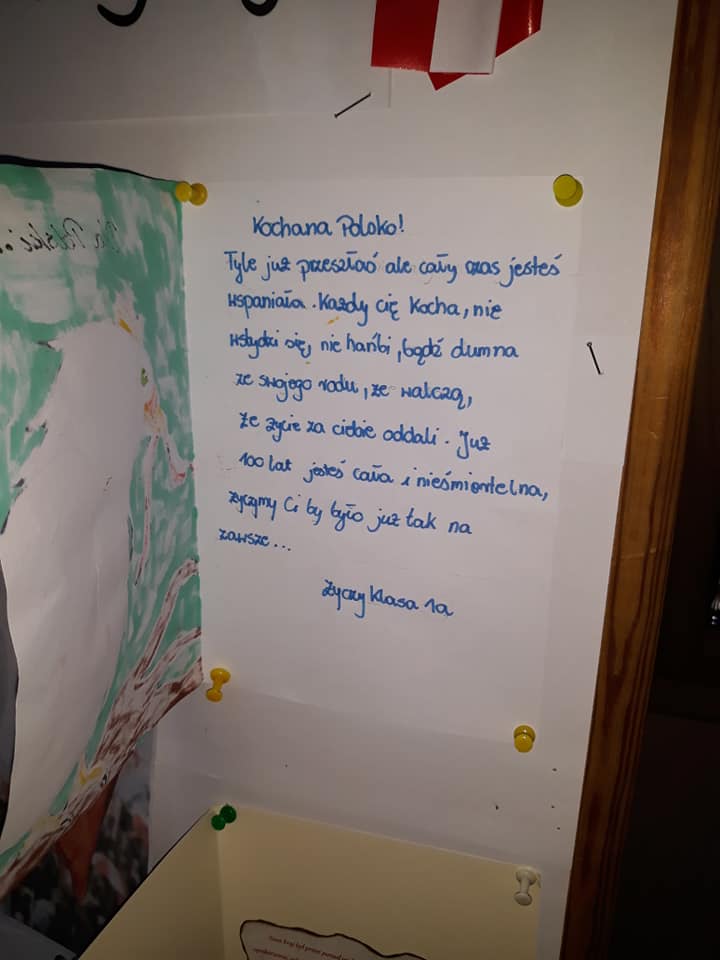 Dla Polski...
Kochana Polsko!
Tyle już przeszłaś ale cały czas jesteś
wspaniała. Każdy cię kocha, nie
wstydź się, nie hańbi, bądź dumna
ze swojego rodu, że walczą,
że życie za ciebie oddali. Już
100 lat jesteś cała i nieśmiertelna,
życzymy Ci by było już tak na
zawsze...
Życzy klasa 1a